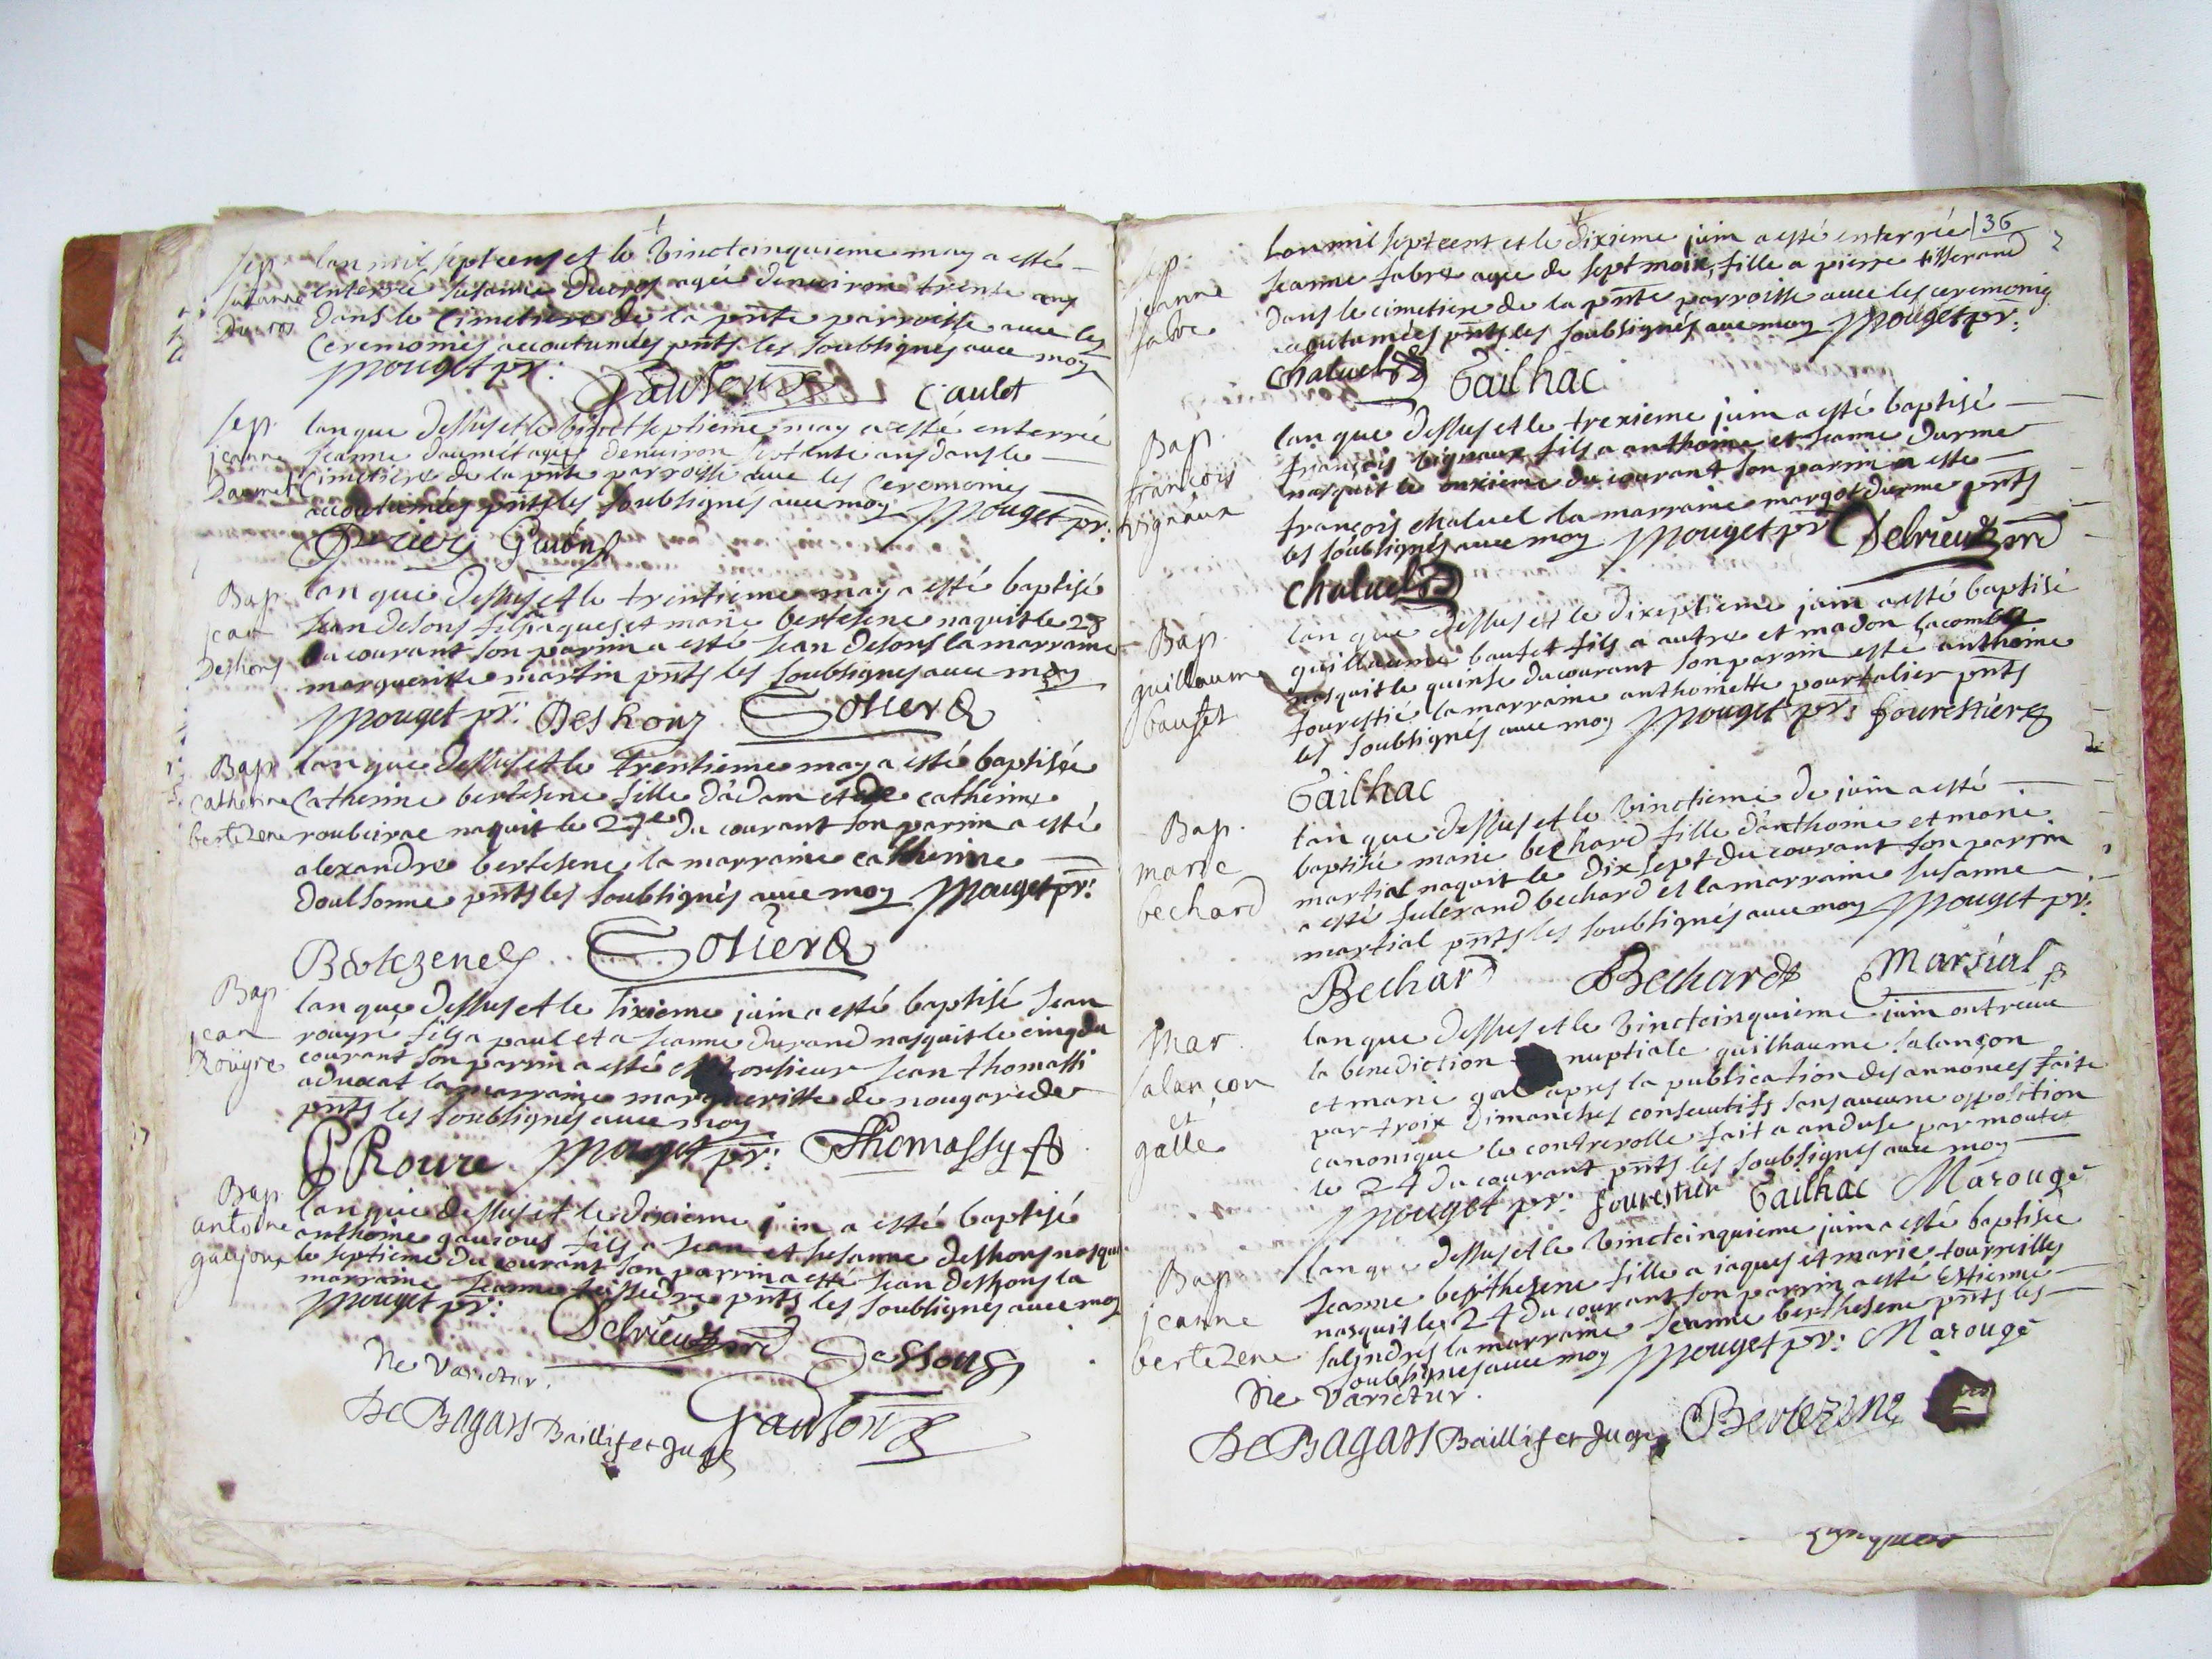 sep.
susanne
Ducros
lan mil sept cens et le vinctcinquieme may a esté
enterrée susanne Ducros agée denviron trente ans
dans le cimetiere de la pnte parroisse avec les
ceremonies accoutumées pnts les soubsignes avec moy
Mouget pr:
Caulet
sep.
jeanne
Daumet
lan que dessus et le vinctseptieme may a esté enterrée
jeanne daumet agée denviron ans dans le
cimetiere de la pnte parroisse avec les ceremonies
accoutumées pnts les soubsignes avec moy Mouget pr:
Bap.
jean
Deshons
lan que dessus et le trentieme may a esté baptisé
jean desons fils a jaques et marie bertesene naquit le 28
du courant son parrin a esté jean desons la marraine
marguerite martin pnts les soubsignes avec moy
Mouget pr: Deshons Soliere
Bap.
catherine
bertezene
lan que dessus et le trentieme may a esté baptisée
catherine bertesene fille d'adam et de catherine
roubeirac naquit le 27e du courant son parrin a esté
alexandre bertesene la marraine catherine
doulsonne pnts les soubsignés avec moy Mouget pr:
Bertezene Soliere
Bap.
jean
Rouyre
lan que dessus et le sixieme juin a esté baptisé jean
rouyre fils a paul et a jeanne durand nasquit le cinq du
courant son parrin a esté monsieur jean thomassi
advocat la marraine margueritte de nougarede
pnts les soubsignes avec moy
P Roure Mouget pr: Thomassy
Bap.
antoine
gaujoux
lan que dessus et le dixieme juin a esté baptisé
anthoine gauious fils a jean et susanne deshons nasquit
le septieme du courant son parrin a esté jean deshons la
marraine jeanne teissedre pnts les soubsignes avec moy
Mouget pr:
Delrieu
Deshons
Ne Varietur.
De Bagars Baillif et Juge
sep.
jeanne
fabre
136
Lan mil sept cent et le dixieme juin a esté enterrée
jeanne fabre agée de sept mois, fille a pierre tisserand
dans le cimetiere de la pnte parroisse avec les ceremonies
accoutumées pnts les soubsignés avec moy Mouget pr:
Chaluel Gailhac
Bap.
françois
vignaux
lan que dessus et le trexieme juin a esté baptisé
françois vignaux fils a anthoine et jeanne durme
nasquit le onxieme du courant son parrin a esté
françois chaluel la marraine margot durme pnts
les soubsignés avec moy Mouget pr Delrieu
Chaluel
Bap.
guillaume
bauset
lan que dessus et le dixeptieme juin a esté baptisé
guillaume bauset fils a autre et madon lacombe
nasquit le quinse du courant son parrin esté anthoine
fourestié la marraine anthoinette pourtalier pnts
les soubsignés avec moy Mouget pr: fourestier
Gailhac
Bap.
marie
bechard
lan que dessus et le vinctieme de juin a esté
baptisée marie bechard fille d'anthoine et marie
martial naquit le dix sept du courant son parrin
a esté fulcrand bechard et la marraine susanne
martial pnts les soubsignés avec moy Mouget pr:
Bechard Bechard Marsial
Mar.
salançon
et
galle
lan que dessus et le vinctcinquieme juin ont receu
la benediction nuptiale guilhaume salançon
et marie gal apres la publication des annonces faite
par trois dimanches consecutifs sans aucune opposition
canonique le controrolle fait a anduse par moutet
le 24 du courant pnts les soubsignes avec moy
Mouget pr: fourestier Gailhac Marouge
Bap.
jeanne
bertezene
lan que dessus et le vinctcinquieme juin a esté baptisée
jeanne berthesene fille a jaques et marie tourreilles
nasquit le 24 du courant son parrin a esté estienne
salindres la marraine jeanne berthesene pnts les
soubsignes avec moy Mouget pr: Marouge
Ne Varietur.
De Bagars Baillif et Juge Bertezene